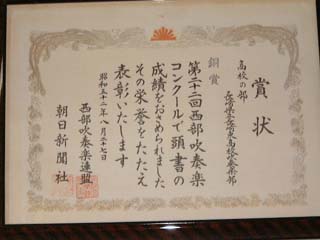 賞状
高校の部
銅賞
第二十二回西部吹奏楽
コンクールで頭書の
成績をおさめられました
その栄誉をたたえ
表彰いたします
昭和五十二年八月二十七日
西部吹奏楽連盟
朝日新聞社